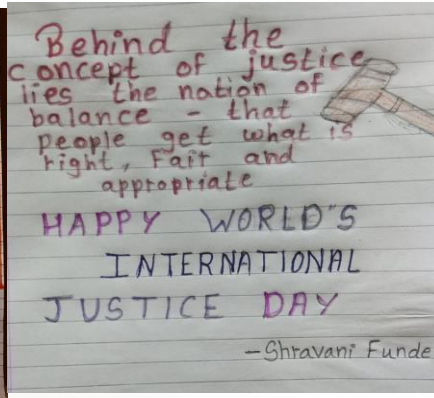 Behind the
concept of justice
lies the nation of
balance - that
people get what is
right, Fair and
appropriate
HAPPY WORLD'S
INTERNATIONAL
JUSTICE DAY
-Shravani Funde